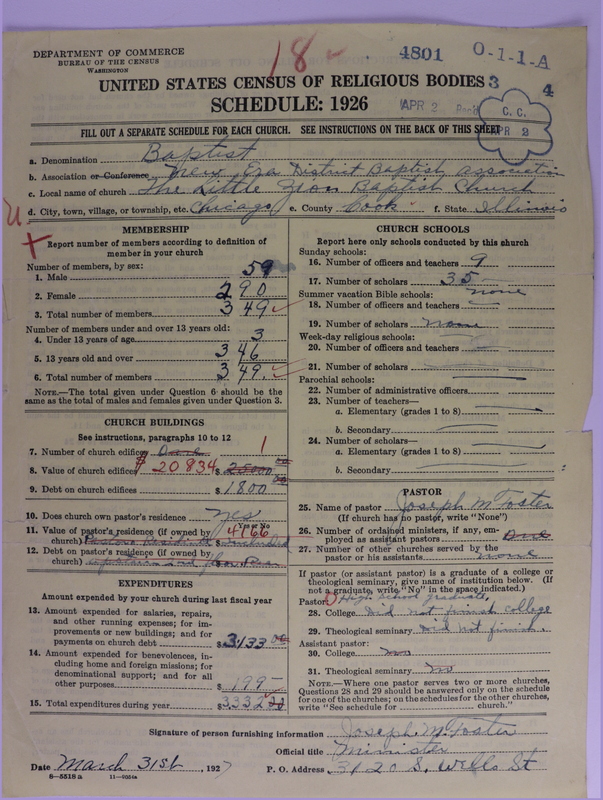 DEPARTMENT OF COMMERCE
BUREAU OF THE CENSUS
WASHINGTON
18
4801
O-1-1-A
3
4
UNITED STATES CENSUS OF RELIGIOUS BODIES
SCHEDULE: 1926
APR 2
C. C.
APR 2
FILL OUT A SEPARATE SCHEDULE FOR EACH CHURCH. SEE INSTRUCTIONS ON THE BACK OF THIS SHEET
a. Denomination Baptist
b. Association or Conference New Era District Baptist Association
c. Local name of church The Little Zion Baptist Church
d. City, town, village, or township, etc. Chicago e. County Cook f. State Illinois
MEMBERSHIP
Report number of members according to definition of
member in your church
Number of members, by sex:
1. Male 59
2. Female 290
3. Total number of members 349
Number of members under and over 13 years old:
4. Under 13 years of age 3
5. 13 years old and over 346
6. Total number of members 349.
NOTE.—The total given under Question 6 should be the
same as the total of males and females given under Question 3.
CHURCH BUILDINGS
See instructions, paragraphs 10 to 12
7. Number of church edifices 1
8. Value of church edifices $20834 $
9. Debt on church edifices $1800 00
10. Does church own pastor's residence yes
Yes or No
11. Value of pastor's residence (if owned by
church) 4166 $
12. Debt on pastor's residence (if owned by
church)
EXPENDITURES
Amount expended by your church during last fiscal year
13. Amount expended for salaries, repairs,
and other running expenses; for im-
provements or new buildings; and for
payments on church debt $3133 00
14. Amount expended for benevolences, in-
cluding home and foreign missions; for
denominational support; and for all
other purposes $199-
15. Total expenditures during year $3332
CHURCH SCHOOLS
Report here only schools conducted by this church
Sunday schools:
16. Number of officers and teachers 9
17. Number of scholars 35
Summer vacation Bible schools: none
18. Number of officers and teachers
19. Number of scholars none
Week-day religious schools:
20. Number of officers and teachers
21. Number of scholars
Parochial schools:
22. Number of administrative officers
23. Number of teachers—
a. Elementary (grades 1 to 8)
b. Secondary
24. Number of scholars—
a. Elementary (grades 1 to 8)
b. Secondary
PASTOR
25. Name of pastor Joseph M Foster
(If church has no pastor, write "None")
26. Number of ordained ministers, if any, em-
ployed as assistant pastors One
27. Number of other churches served by the
pastor or his assistants none
If pastor (or assistant pastor) is a graduate of a college or
theological seminary, give name of institution below. (If
not a graduate, write "No" in the space indicated.)
Pastor: High School graduate,
28. College Did not finish college
29. Theological seminary Did not finish.
Assistant pastor:
30. College no
31. Theological seminary no
NOTE.—Where one pastor serves two or more churches,
Questions 28 and 29 should be answered only on the schedule
for one of the churches; on the schedules for the other churches,
write "See schedule for church."
Signature of person furnishing information Joseph M Foster
Official title Minister
Date March 31st, 1927 P. O. Address 3120 S. Wells St
8-5518a 11-9024a